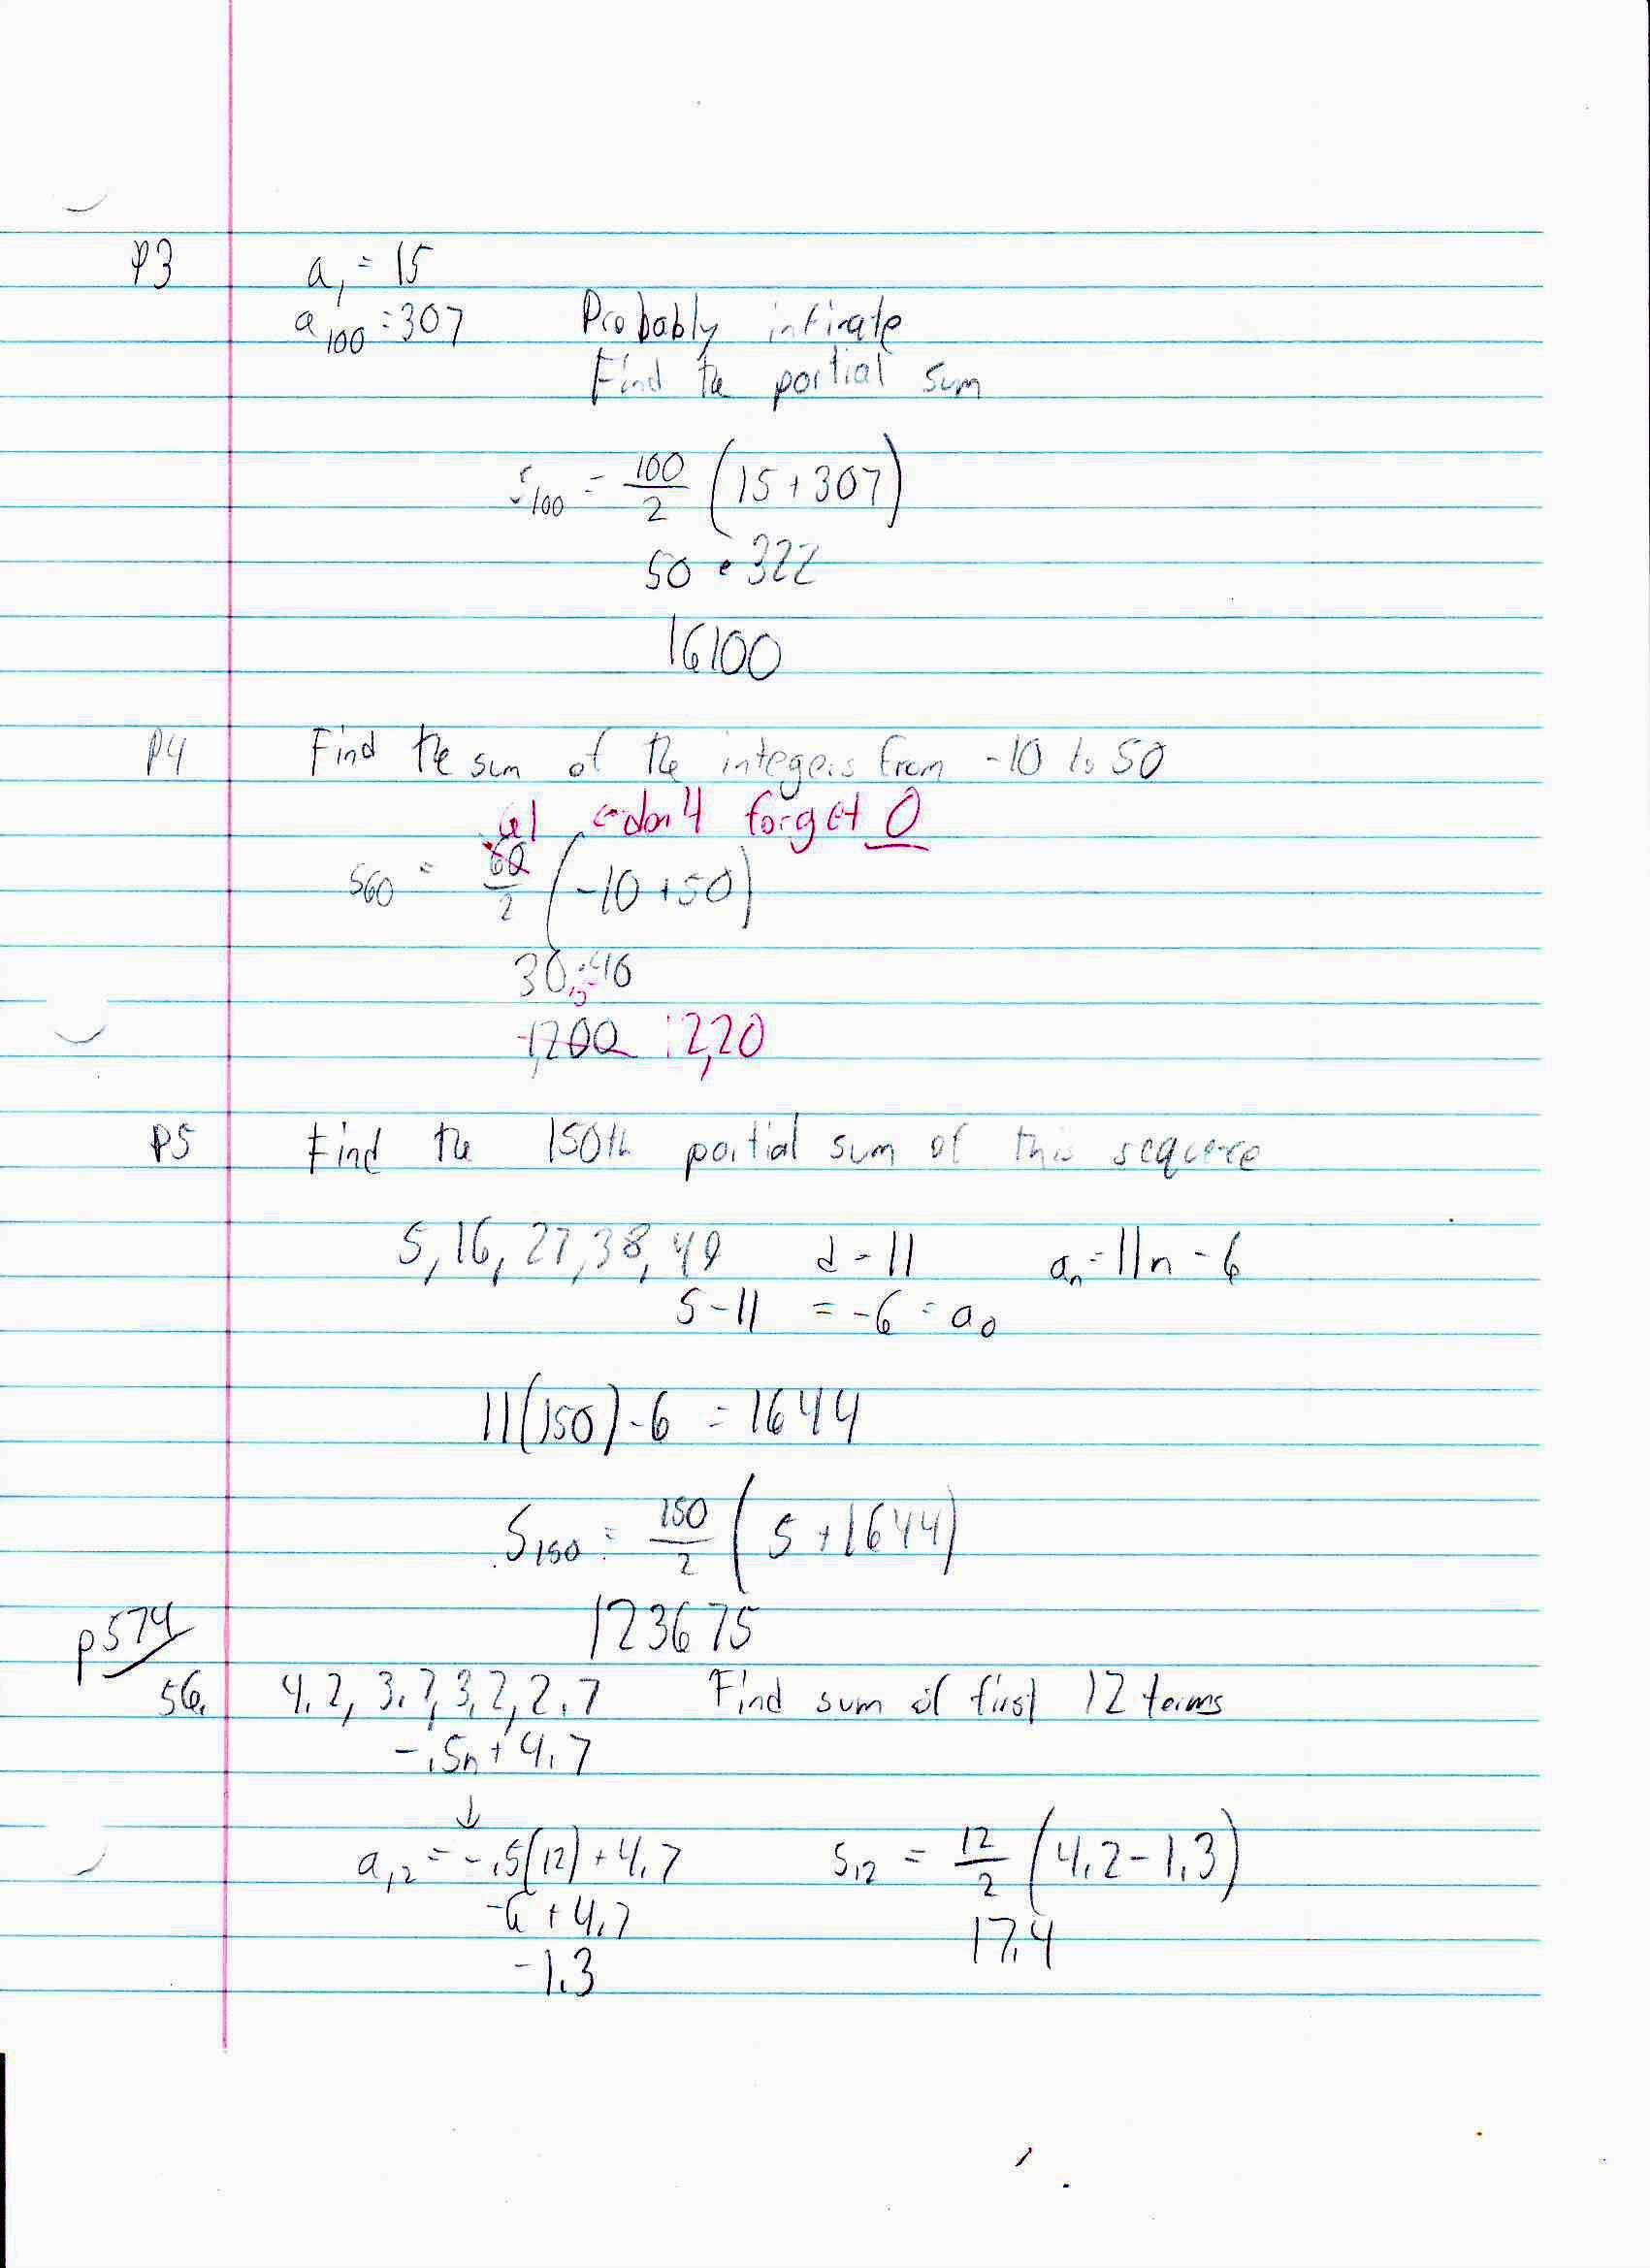 P3 a₁ = 15
a₁₀₀ = 307 Probably infinate
Find the partial sum
S₁₀₀ = 100/2 (15 + 307)
50 • 322
16100
P4 Find the sum of the integers from -10 to 50
61 ← don't forget 0
S₆₀ = 60/2 (-10 + 50)
30 · 40
1,200 12,20
P5 Find the 150th partial sum of this sequence
5, 16, 27, 38, 49 d = 11 aₙ = 11n - 6
5 - 11 = -6 = a₀
11(150) - 6 = 1644
S₁₅₀ = 150/2 (5 + 1644)
123675
p574
56. 4.2, 3.7, 3.2, 2.7 Find sum of first 12 terms
-.5n + 4.7
↓
a₁₂ = -.5(12) + 4.7 S₁₂ = 12/2 (4.2 - 1.3)
-6 + 4.7 17.4
-1.3